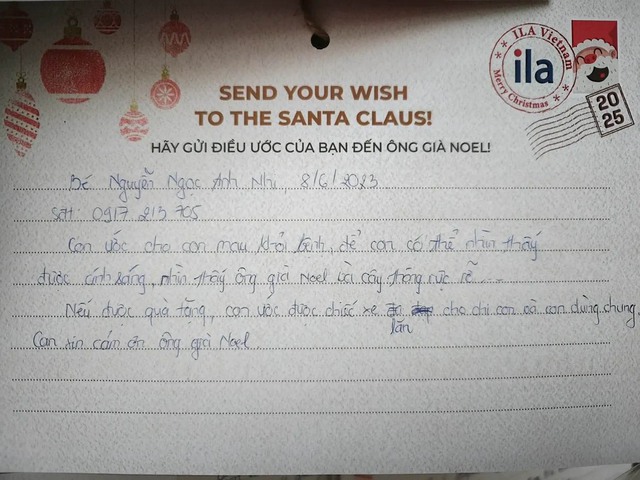 ILA Vietnam
ila
Merry Christmas
20
25
SEND YOUR WISH
TO THE SANTA CLAUS!
HÃY GỬI ĐIỀU ƯỚC CỦA BẠN ĐẾN ÔNG GIÀ NOEL!
Bé Nguyễn Ngọc Anh Nhi, 8/6/2023
SĐT: 0917 213 705
Con ước cho con mau khỏi bệnh, để con có thể nhìn thấy
được ánh sáng, nhìn thấy ông già Noel và cây thông rực rỡ....
Nếu được quà tặng, con ước được chiếc xe lăn cho chị con và con dùng chung.
Con xin cám ơn ông già Noel